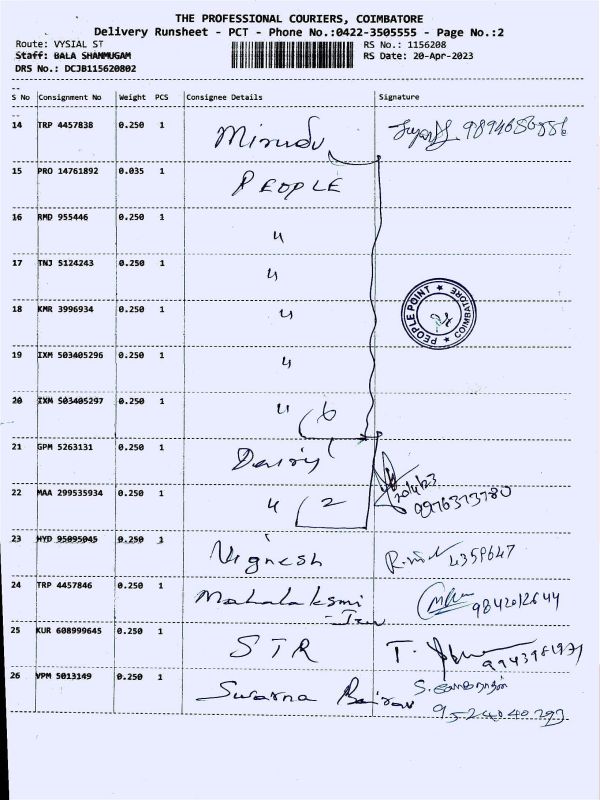 THE PROFESSIONAL COURIERS, COIMBATORE
Delivery Runsheet - PCT - Phone No.:0422-3505555 - Page No.:2
Route: VYSIAL ST RS No.: 1156208
Staff: BALA SHANMUGAM RS Date: 20-Apr-2023
DRS No.: DCJB115620802
S No Consignment No Weight PCS Consignee Details Signature
14 TRP 4457838 0.250 1 Mirudu
15 PRO 14761892 0.035 1 PEOPLE
16 RMD 955446 0.250 1 "
17 TNJ 5124243 0.250 1 "
18 KMR 3996934 0.250 1 " PEOPLE POINT ★ COIMBATORE ★
19 IXM 503405296 0.250 1 "
20 IXM 503405297 0.250 1 " 6
21 GPM 5263131 0.250 1
22 MAA 299535934 0.250 1 " 2 20/4/23
23 HYD 95095045 0.250 1 Vignesh 4359647
24 TRP 4457846 0.250 1 Mahalaksmi 9842012644
25 KUR 608999645 0.250 1 STR T.
26 VPM 5013149 0.250 1 Swarna